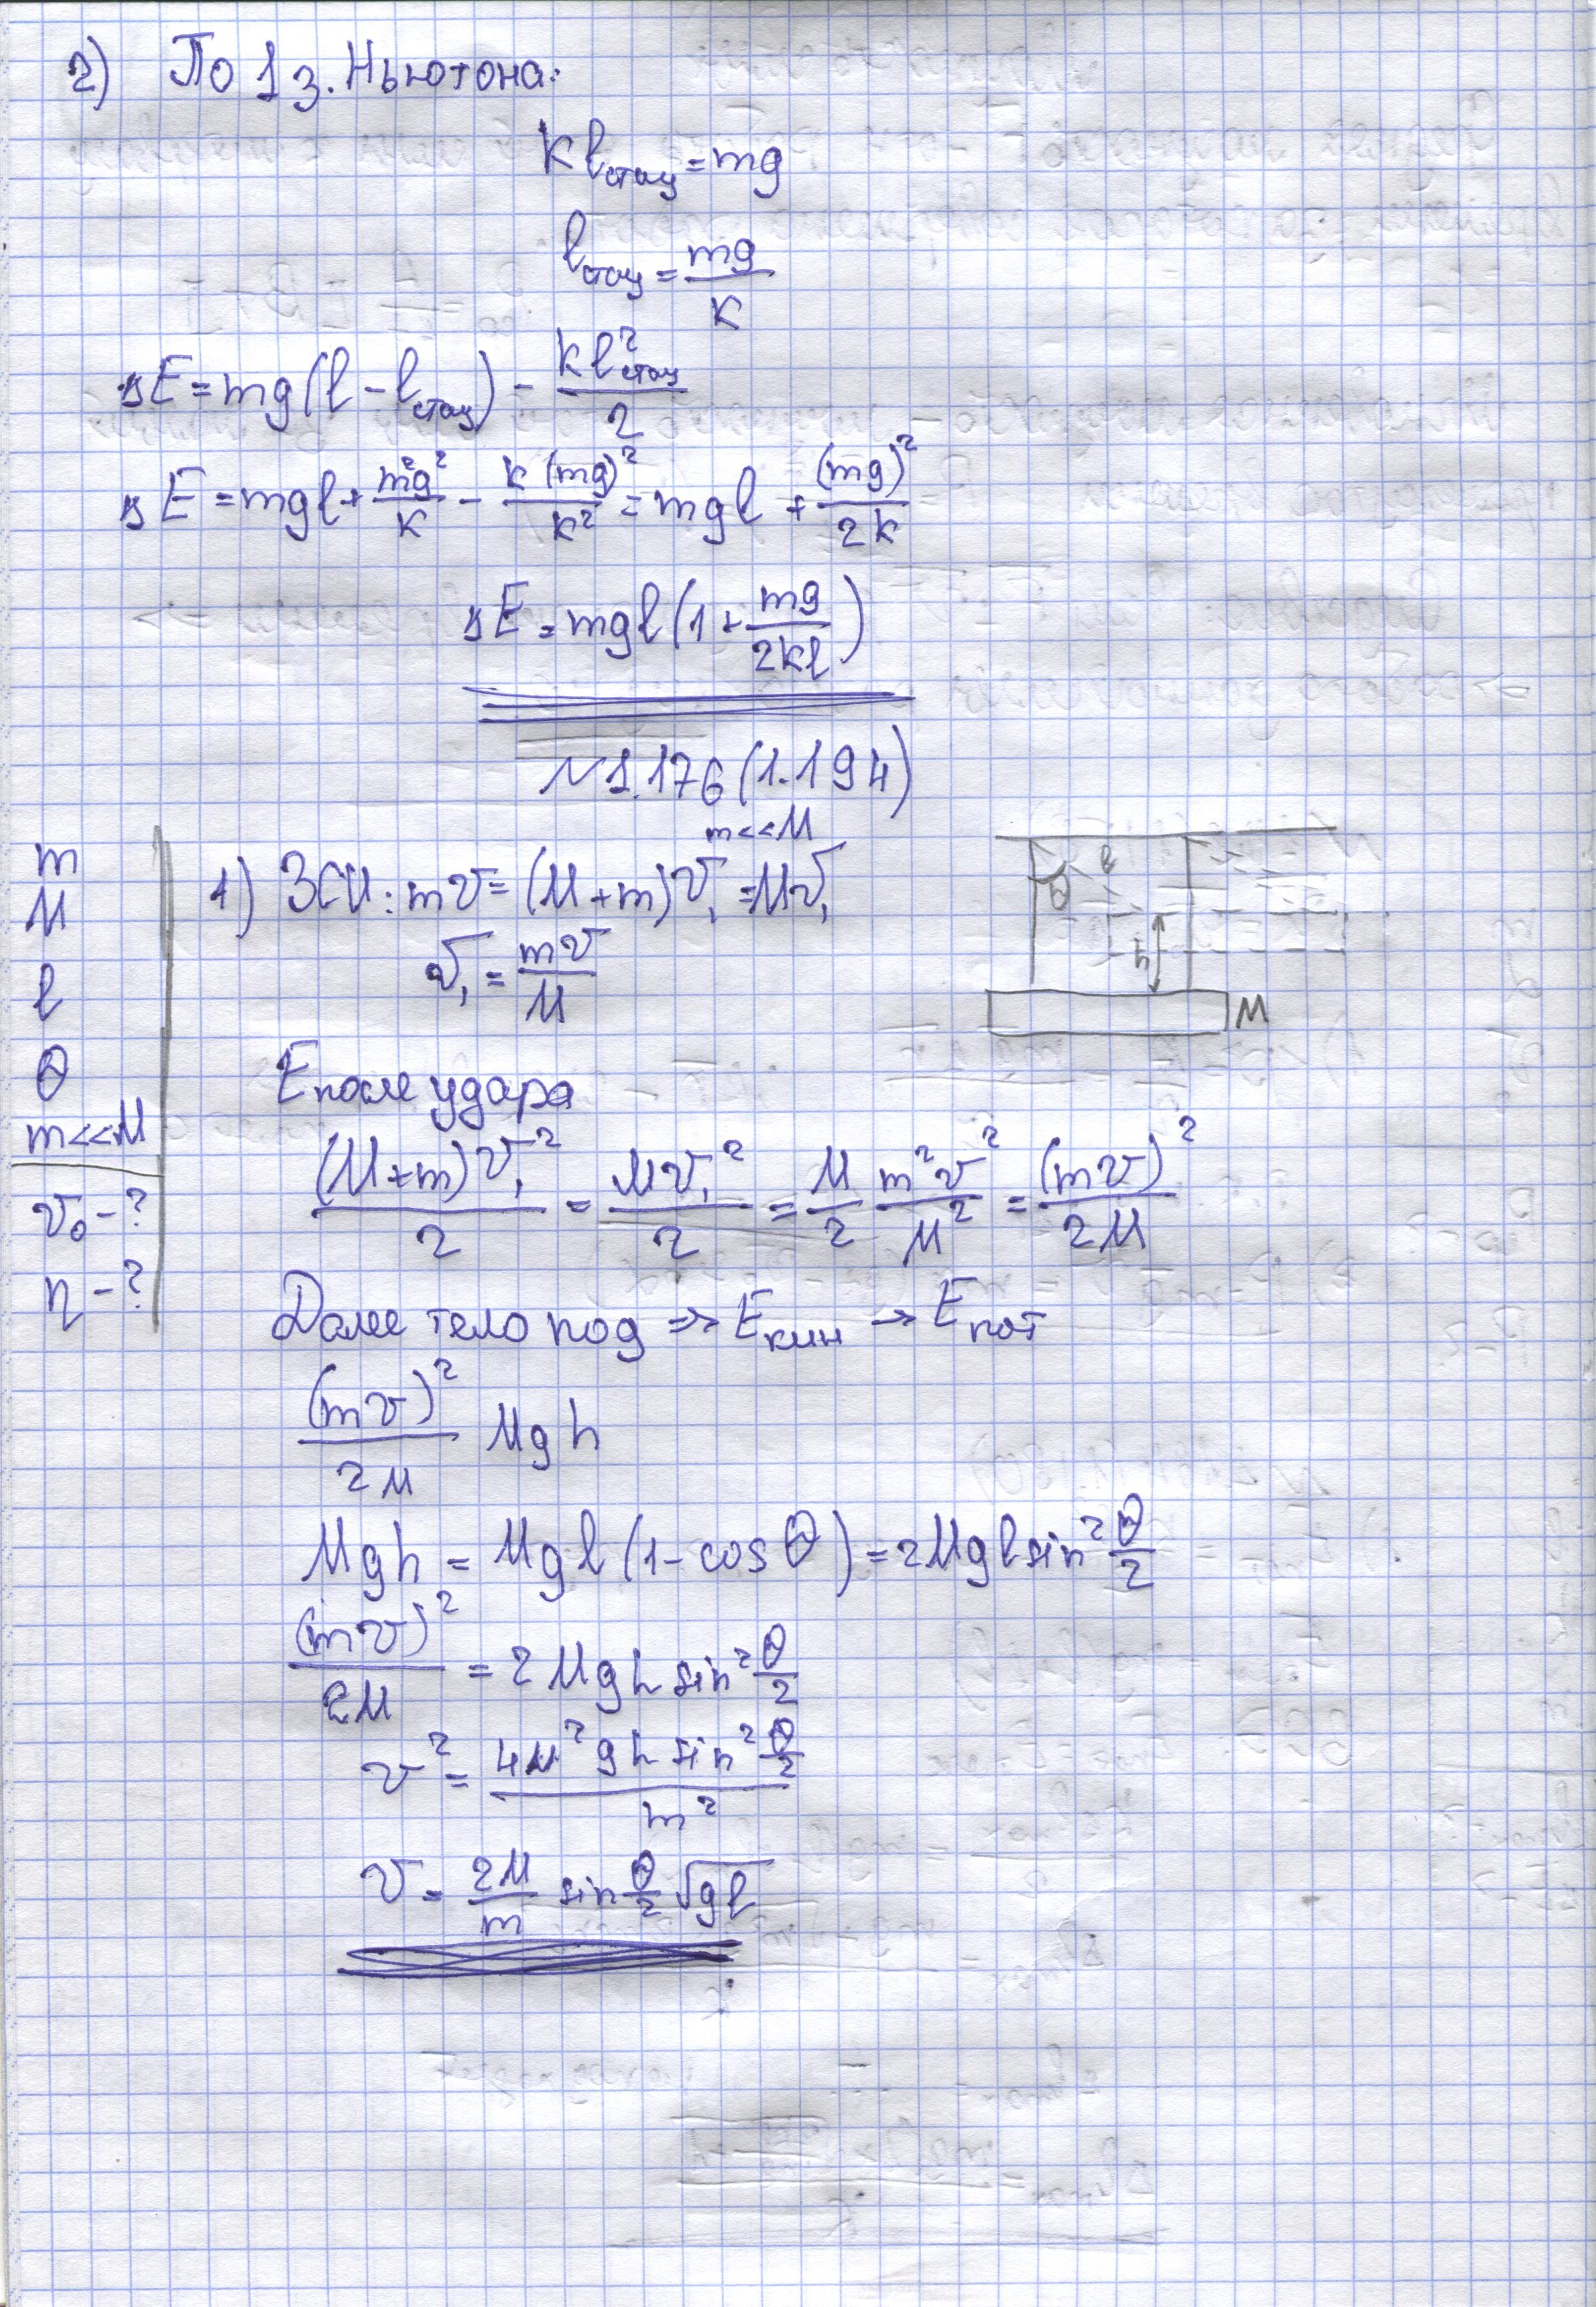 2) По 1 з. Ньютона:
kl стац = mg
l стац = mg/k
ΔE = mg(l - l стац) - kl²стац/2
ΔE = mgl + m²g²/k - k(mg)²/k² = mgl + (mg)²/2k
ΔE = mgl(1 + mg/2kl)
№1.176(1.194)
m
M
l
θ
m<<M
v₀ - ?
η - ?
m<<M
1) ЗСИ: mv = (M+m)v₁ = Mv₁
v₁ = mv/M
θ l
h
M
E после удара
(M+m)v₁²/2 = Mv₁²/2 = M/2 m²v²/M² = (mv)²/2M
Далее тело под => E кин → E пот
(mv)²/2M Mgh
Mgh = Mgl(1 - cosθ) = 2Mgl sin² θ/2
(mv)²/2M = 2Mgh sin² θ/2
v² = 4M²gh sin² θ/2 / m²
v = 2M/m sin θ/2 √gl